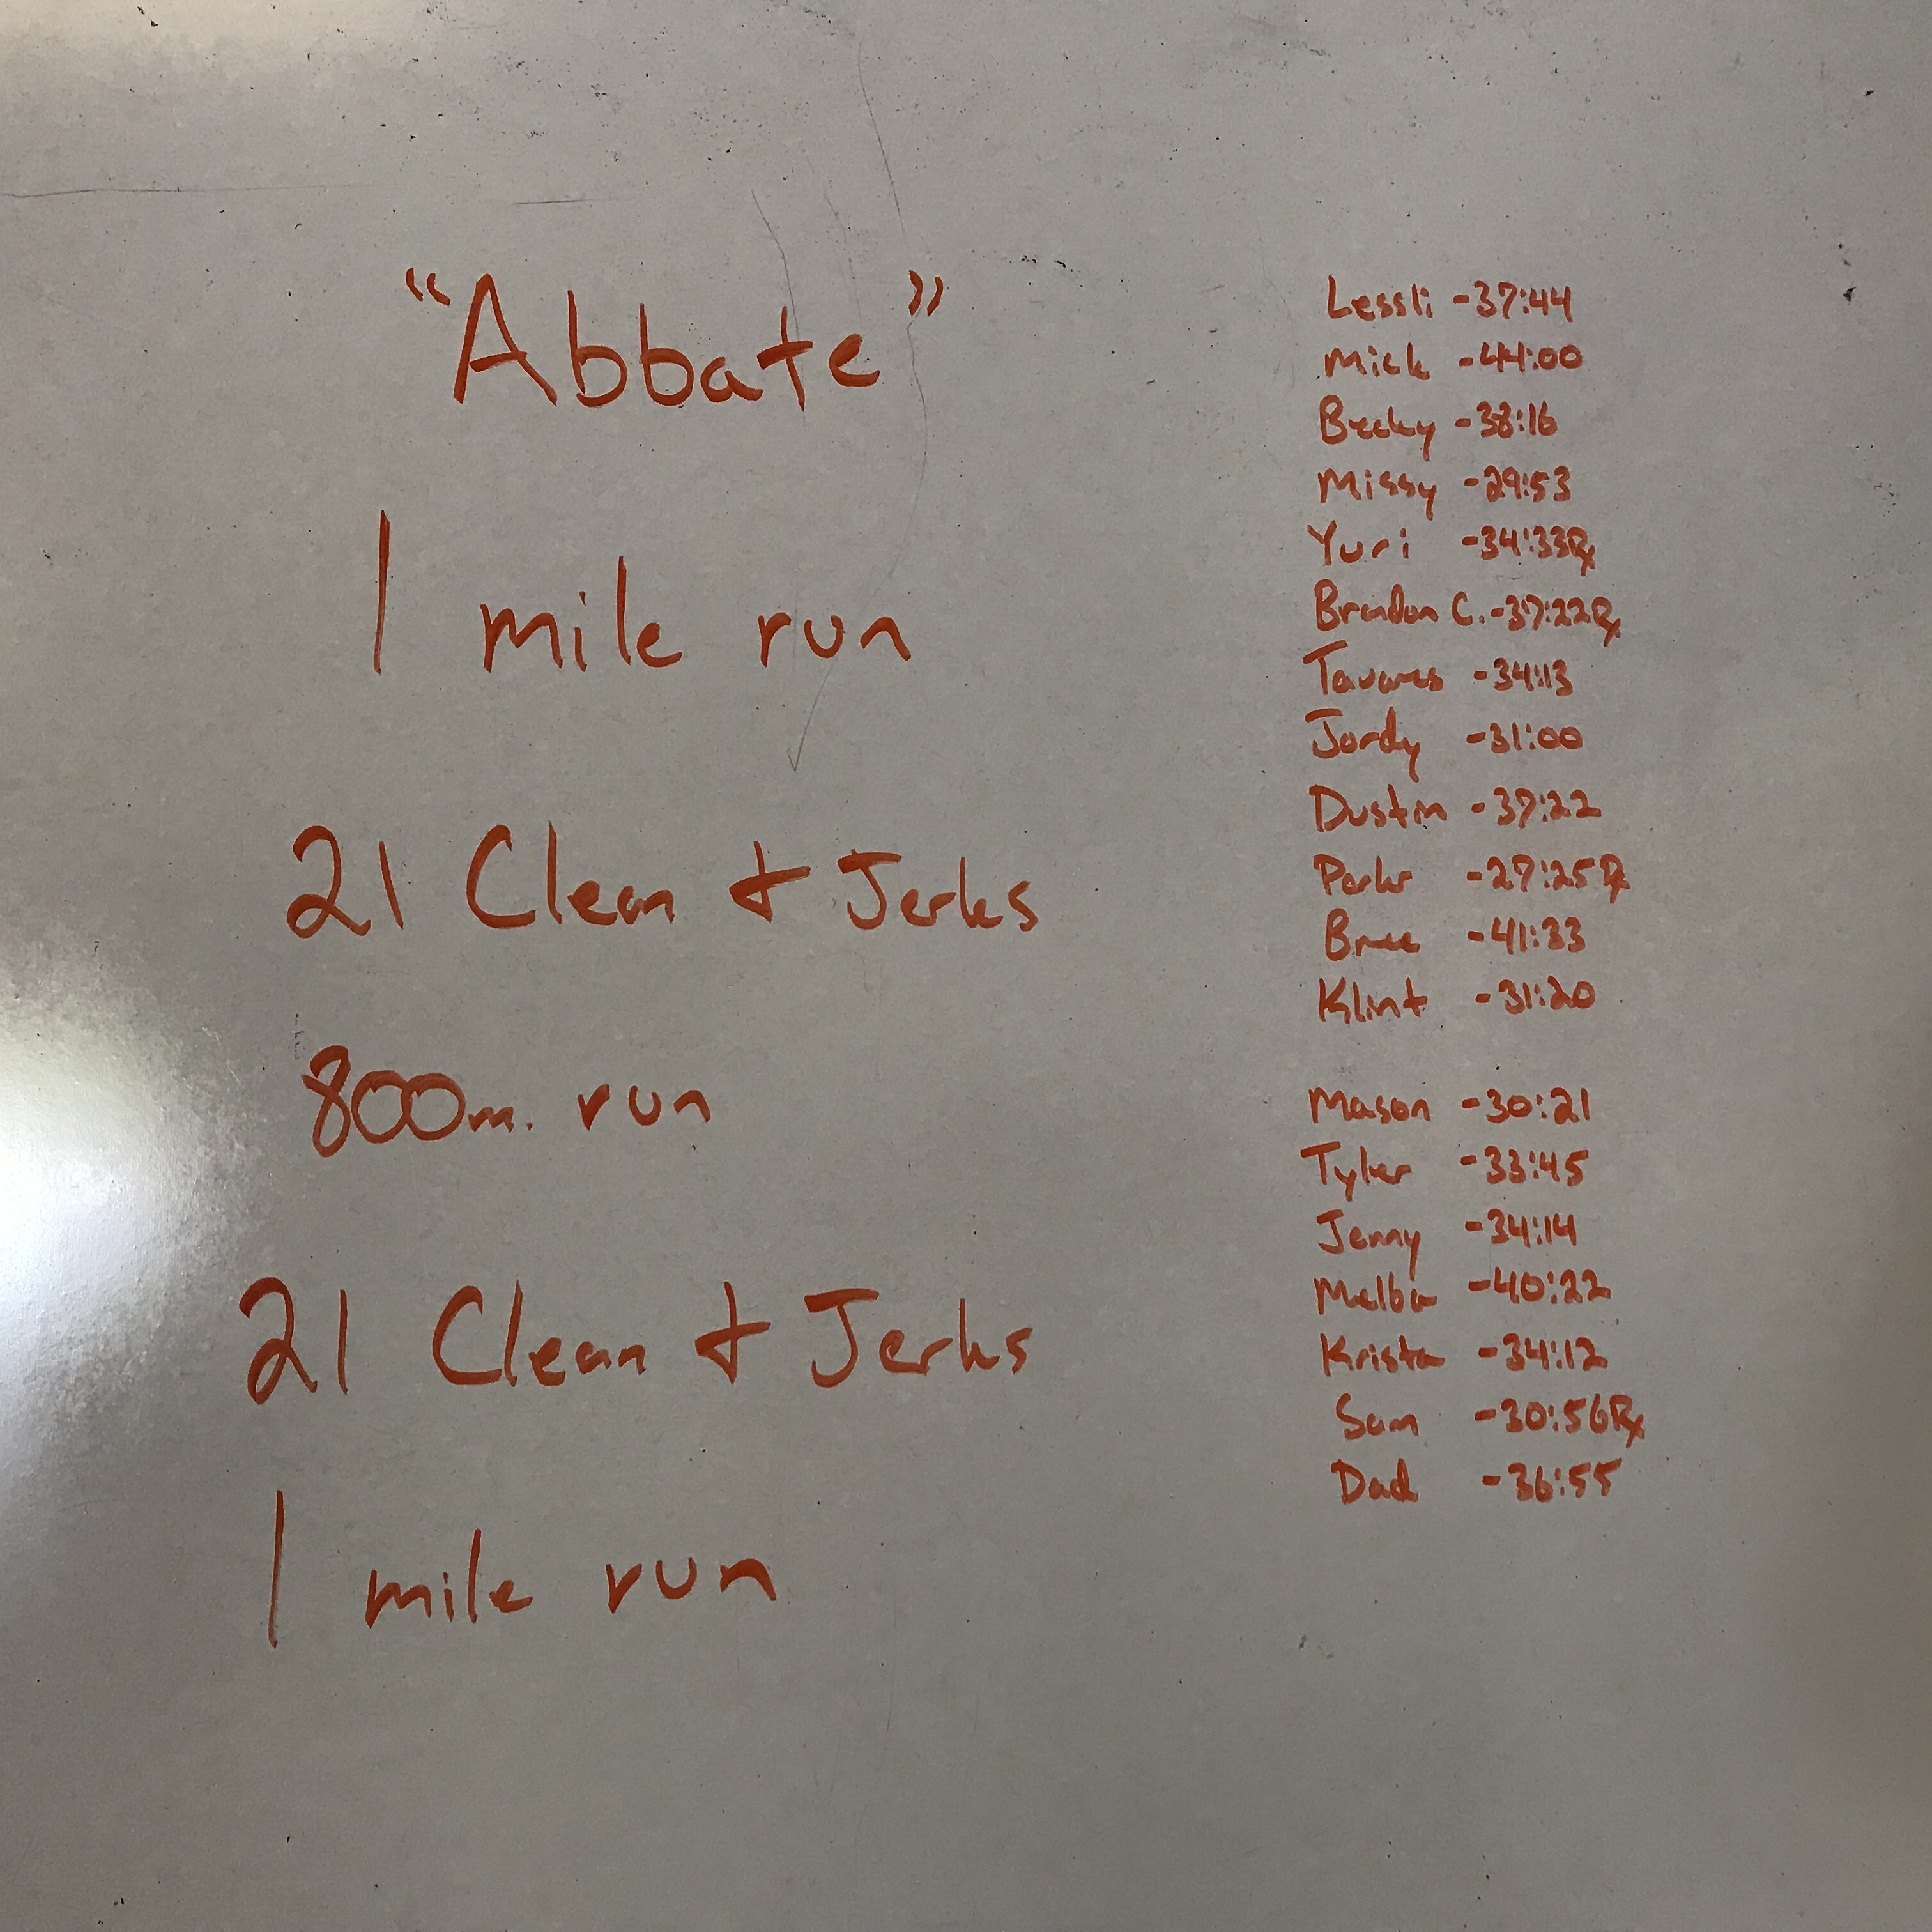 “Abbate”
1 mile run
21 Clean + Jerks
800m. run
21 Clean + Jerks
1 mile run
Lessli - 37:44
Mick - 44:00
Becky - 38:16
Missy - 29:53
Yuri - 34:33 Rx
Brandon C. - 37:22 Rx
Tavares - 34:13
Jordy - 31:00
Dustin - 37:22
Parker - 27:25 Rx
Bree - 41:33
Klint - 31:20
Mason - 30:21
Tyler - 33:45
Jenny - 34:14
Melba - 40:22
Krista - 34:12
Sam - 30:56 Rx
Dad - 36:55